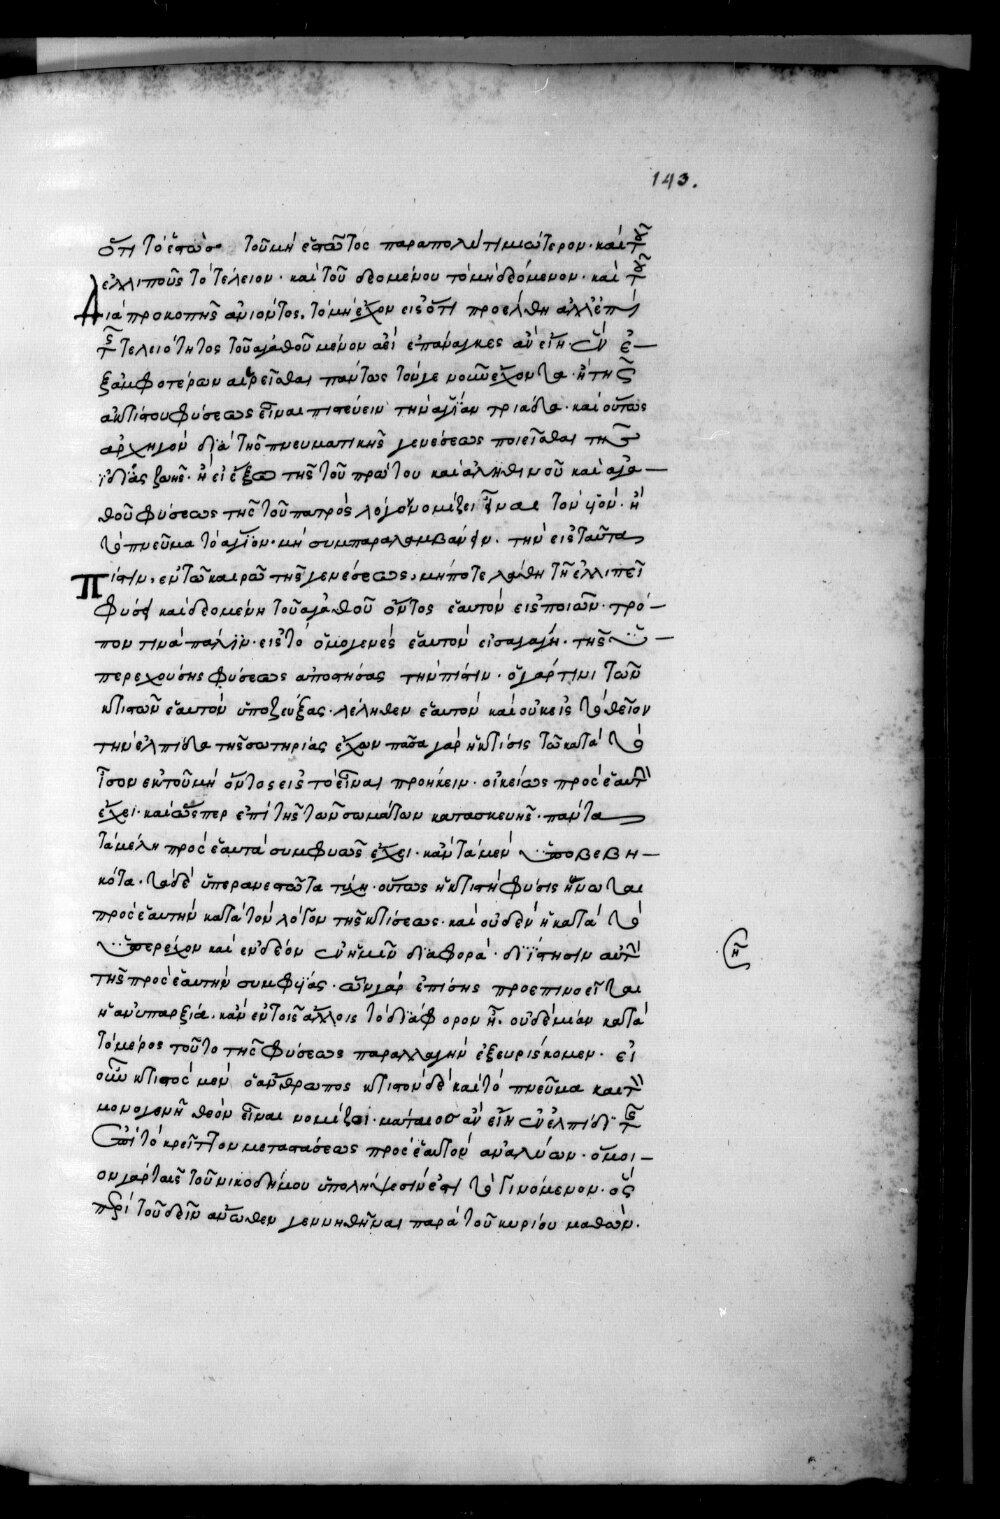 143.
ὅτι τὸ ἑστὼς τοῦ μὴ ἑστῶτος παραπολὺ τιμιώτερον· καὶ τοῦ
ἐλλιποῦς τὸ τέλειον· καὶ τοῦ δεομένου τὸ μὴ δεόμενον· καὶ τοῦ
διὰ προκοπῆς ἀνιόντος, τὸ μὴ ἔχον εἰς ὅτι προέλθη ἀλλ' ἐπὶ
τῆς τελειότητος τοῦ ἀγαθοῦ μένον ἀεὶ ἐπάναγκες ἂν εἴη· ἓν ἐ-
ξ ἀμφοτέρων αἱρεῖσθαι πάντως τόν γε νοῦν ἔχοντα· ἢ τῆς
ἀκτίστου φύσεως εἶναι πιστεύειν τὴν ἁγίαν τριάδα· καὶ οὕτως
ἀρχηγὸν διὰ τῆς πνευματικῆς γενέσεως ποιεῖσθαι τῆς
ἰδίας ζωῆς· ἢ εἰ ἔξω τῆς τοῦ πρώτου καὶ ἀληθινοῦ καὶ ἀγα-
θοῦ φύσεως τῆς τοῦ πατρὸς λόγον νομίζει εἶναι τὸν υἱὸν· ἢ
τὸ πνεῦμα τὸ ἅγιον· μὴ συμπαραλαμβάνειν. τὴν εἰς ταῦτα
πίστιν, ἐν τῶ καιρῶ τῆς γενέσεως, μήποτε λάθη τῆ ἐλλιπεῖ
φύσει καὶ δεομένη τοῦ ἀγαθοῦ ὄντος ἑαυτὸν εἰσποιῶν· τρό-
πον τινὰ πάλιν· εἰς τὸ ὁμογενὲς ἑαυτὸν εἰσαγάγη· τῆς ὑ-
περεχούσης φύσεως ἀποστήσας τὴν πίστιν· ὁ γάρ τινι τῶν
κτιστῶν ἑαυτὸν ὑποζεύξας· λέληθεν ἑαυτὸν καὶ οὐκ εἰς τὸ θεῖον
τὴν ἐλπίδα τῆς σωτηρίας ἔχων πᾶσα γὰρ ἡ κτίσις τῶ κατὰ τὸ
ἴσον ἐκ τοῦ μὴ ὄντος εἰς τὸ εἶναι προήκειν· οἰκείως πρὸς ἑαυτὴν
ἔχει· καὶ ὥσπερ ἐπὶ τῆς τῶν σωμάτων κατασκευῆς· πάντα
τὰ μέλη πρὸς ἑαυτὰ συμφυῶς ἔχει· κἂν τὰ μὲν ὑποβεβη-
κότα· τὰ δὲ ὑπερανεστῶτα τύχη· οὕτως ἡ κτιστὴ φύσις ἥνωται
πρὸς ἑαυτὴν κατὰ τὸν λόγον τῆς κτίσεως· καὶ οὐδὲν ἡ κατὰ τὸ
ὑπερέχον καὶ ἐνδέον ἐν ἡμῖν διαφορά· διΐστησιν αὐτὴν
τῆς πρὸς ἑαυτὴν συμφυίας· ὧν γὰρ ἐπίσης προεπινοεῖται
ἡ ἀνυπαρξία· κἂν ἐν τοῖς ἄλλοις τὸ διάφορον ἦ· οὐδεμίαν κατὰ
τὸ μέρος τοῦτο τῆς φύσεως παραλλαγὴν ἐξευρίσκομεν· εἰ
οὖν κτιστὸς μὲν ὁ ἄνθρωπος κτιστὸν δὲ καὶ τὸ πνεῦμα καὶ τὸν
μονογενῆ θεὸν εἶναι νομίζει· μάταιος ἂν εἴη ἐν ἐλπίδι τῆς
ἐπὶ τὸ κρεῖττον μεταστάσεως πρὸς ἑαυτὸν ἀναλύων· ὅμοι-
ον γὰρ ταῖς τοῦ νικοδήμου ὑπολήψεσίν ἐστι τὸ γινόμενον· ὃς
περὶ τοῦ δεῖν ἄνωθεν γεννηθῆναι παρὰ τοῦ κυρίου μαθὼν.